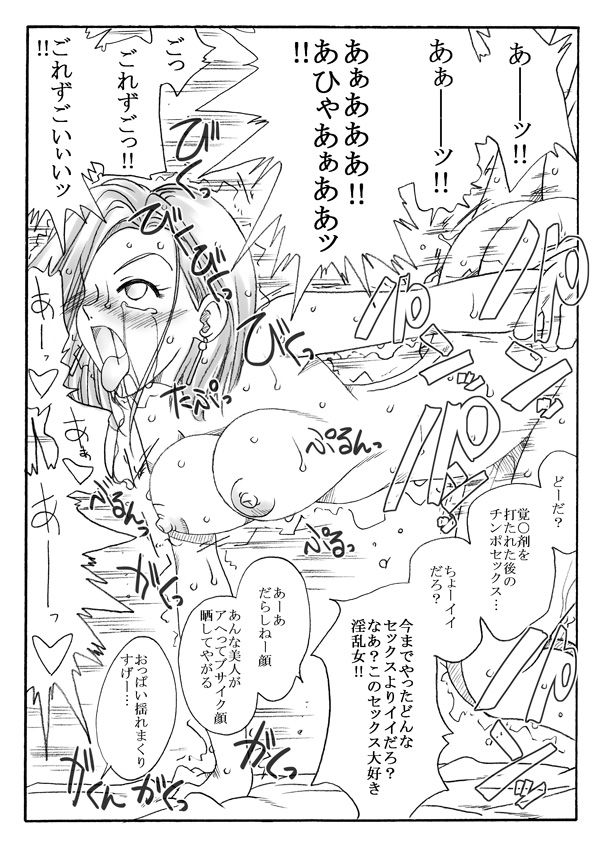 あーーッ!!
あぁーーッ!!
あぁあああ!!
あひゃあぁああッ
!!
ごっ
ごれずごっ!!
ごれずごいぃいッ
!!
びくっ
びーびーっ
びくっ
たぷっ
ぷるんっ
ぷるっ
べるんっ
あーっ♡
あぁ♡
あーっ♡
パン
パン
パン
パン
どーだ?
覚〇剤を
打たれた後の
チンポセックス…
ちょーイイ
だろ?
今までやったどんな
セックスよりイイだろ?
なあ?このセックス大好き
淫乱女!!
あーあ
だらしねー顔
あんな美人が
アヘってブサイク顔
晒してやがる
おっぱい揺れまくり
すげー…
がくっ
がくんがくんっ